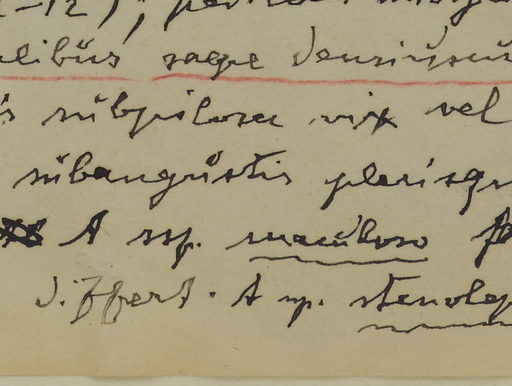 -12), 
alibus saepe densiuscu
is subpilosa vix vel
subangustis plerisqu
A ssp. maculoso
differt. A ssp. stenolep